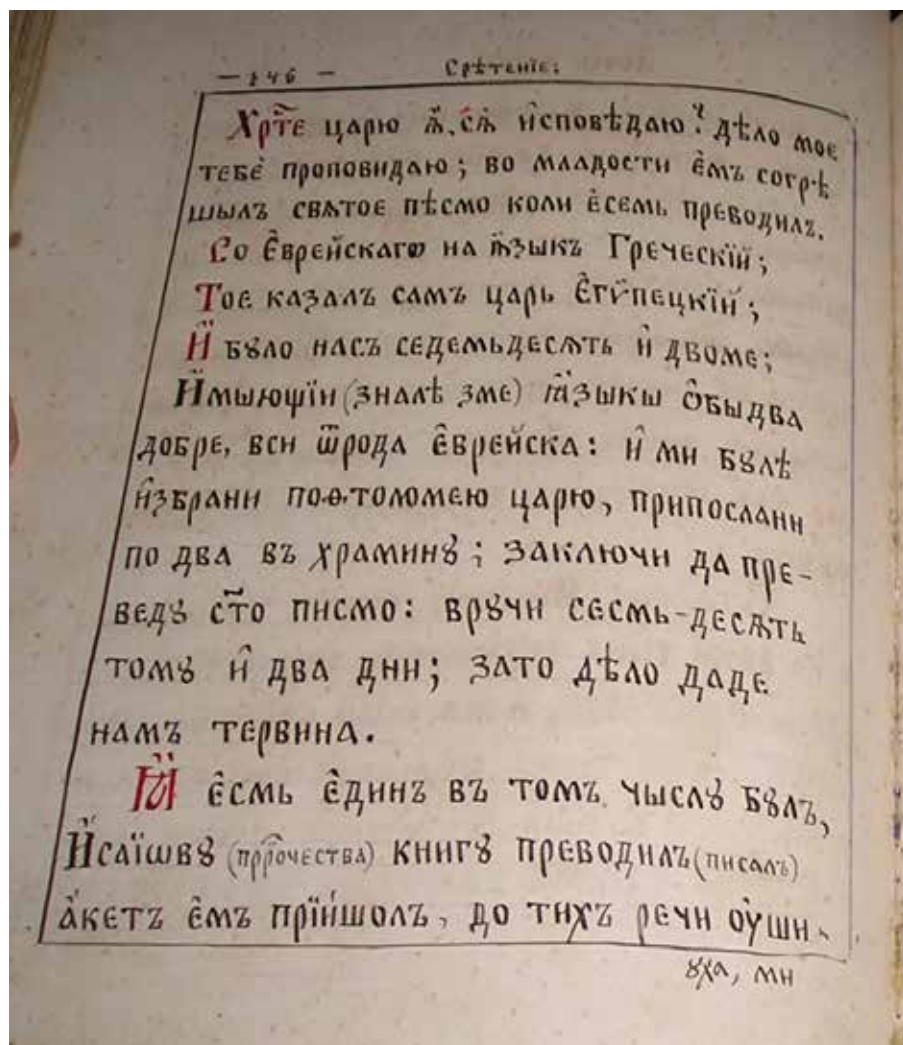 — 246 — Срѣтенїе:
Хрⷭ҇те царю ꙗ҆̀, сѧ̀ и҆сповѣдаю: дѣло моє
тебѐ проповидаю; во младости є҆́мъ согрѣ
шылъ свѧтоє пѣсмо коли є҆семь преводилъ.
Со є҆врейскагѡ на ѧ҆зыкъ Греческїй;
Тоє казалъ самъ царь Є҆гѵ́пецкїй;
И҆̀ бꙋло насъ седемьдесѧть и҆ двоме;
И҆мыющїи (зналѣ зме) ꙗ҆зыкы ѻ҆быдва
добре, вси ѿрода є҆врейска: и҆ ми бꙋлѣ
и҆збрани поѳтоломею царю, припослани
по два въ храминꙋ; заключи да пре-
ведꙋ ст҃о писмо: врꙋчи сєсмь-десѧть
томꙋ и҆ два дни; зато дѣло даде
намъ тервина.
Ꙗ҆̀ є҆смь є҆динъ въ томъ числꙋ бꙋлъ,
И҆саїѡвꙋ (прⷪ҇рочества) книгꙋ преводилъ (писалъ)
а҆кетъ є҆мъ прїйшолъ, до тихъ речи ᲂу҆ши-
ꙋха, ми